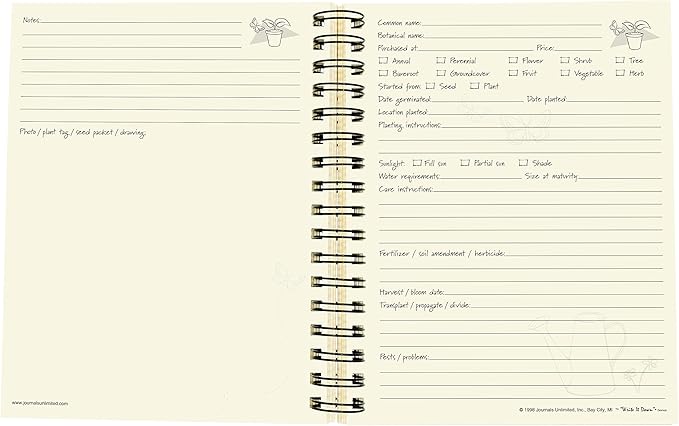 Notes:
Photo / plant tag / seed packet / drawing:
www.journalsunlimited.com
Common name:
Botanical name:
Purchased at: Price:
Annual Perennial Flower Shrub Tree
Bareroot Groundcover Fruit Vegetable Herb
Started from: Seed Plant
Date germinated: Date planted:
Location planted:
Planting instructions:
Sunlight: Full sun Partial sun Shade
Water requirements: Size at maturity:
Care instructions:
Fertilizer / soil amendment / herbicide:
Harvest / bloom date:
Transplant / propagate / divide:
Pests / problems:
© 1998 Journals Unlimited, Inc., Bay City, MI The "Write It Down" Series